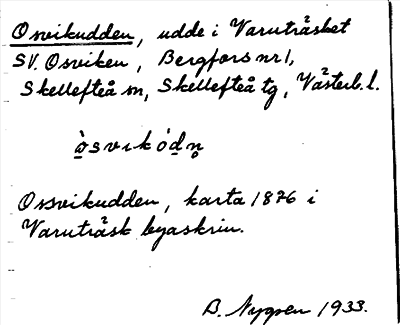 Osvikudden, udde i Varuträsket
SV. Osviken, Bergfors nr 1,
Skellefteå sn, Skellefteå tg, Västerb. l.
ò̱svikód̠n̥
Ossvikudden, karta 1876 i
Varuträsk byaskrin.
B. Nygren 1933.